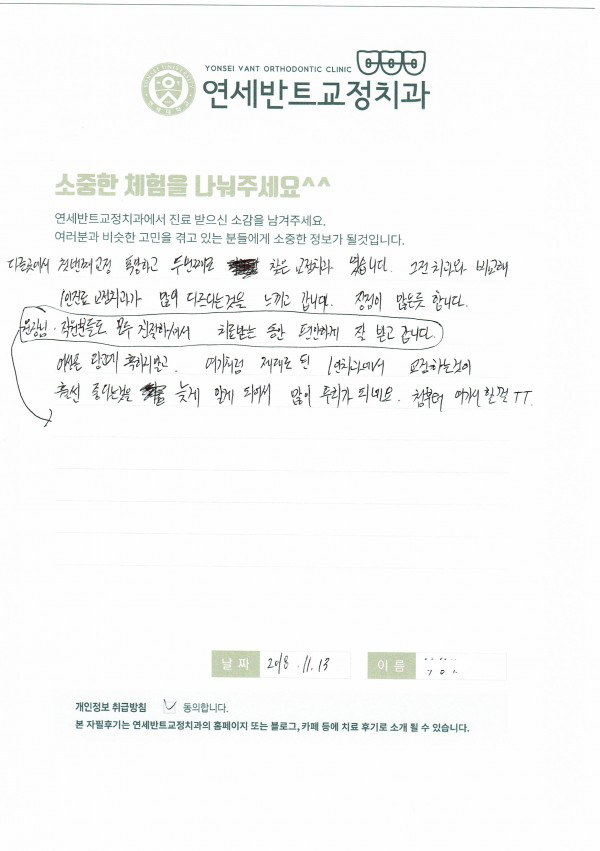 YONSEI VANT ORTHODONTIC CLINIC
연세반트교정치과
소중한 체험을 나눠주세요^^
연세반트교정치과에서 진료 받으신 소감을 남겨주세요.
여러분과 비슷한 고민을 겪고 있는 분들에게 소중한 정보가 될것입니다.
다른곳에서 첫번째교정 폭망하고 두번째로 찾은 교정치과 였습니다. 그전 치과와 비교해
1인진료 교정치과가 많이 다르다는것을 느끼고 갑니다. 장점이 많은듯 합니다.
원장님·직원분들도 모두 친절하셔서 치료받는 동안 편안하게 잘 받고 갑니다.
이상한 광고에 혹하지말고. 여기처럼 제대로 된 치과에서 교정하는것이
훨신 좋다는것을 늦게 알게 되어서 많이 후회가 되네요. 첨부터 여기서 할껄 TT.
날 짜 2018.11.13 이 름
개인정보 취급방침 동의합니다.
본 자필후기는 연세반트교정치과의 홈페이지 또는 블로그, 카페 등에 치료 후기로 소개 될 수 있습니다.